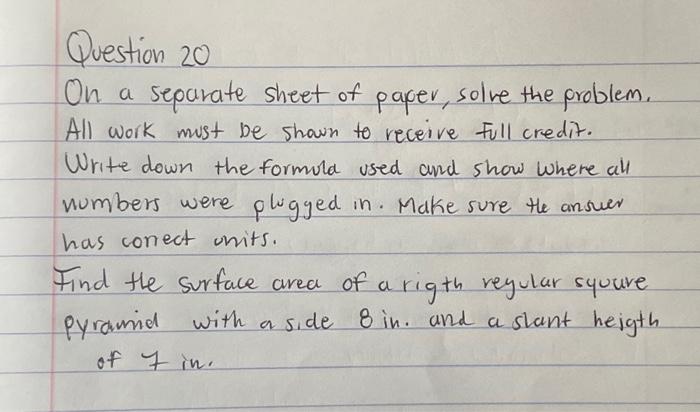 Question 20
On a separate sheet of paper, solve the problem.
All work must be shown to receive full credit.
Write down the formula used and show where all
numbers were plugged in. Make sure the answer
has correct units.
Find the surface area of a rigth regular square
pyramid with a side 8 in. and a slant heigth
of 7 in.